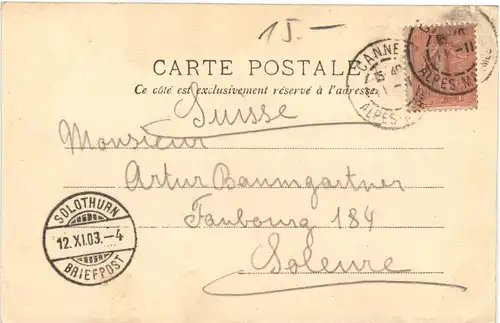 15.-
CARTE POSTALE
Ce côté est exclusivement réservé à l'adresse
Suisse
Monsieur
Artur Baumgartner
Faubourg 184
Soleure
CANNE
ALPES
ALPES M
SOLOTHURN
12.XI.03.-4
BRIEFPOST